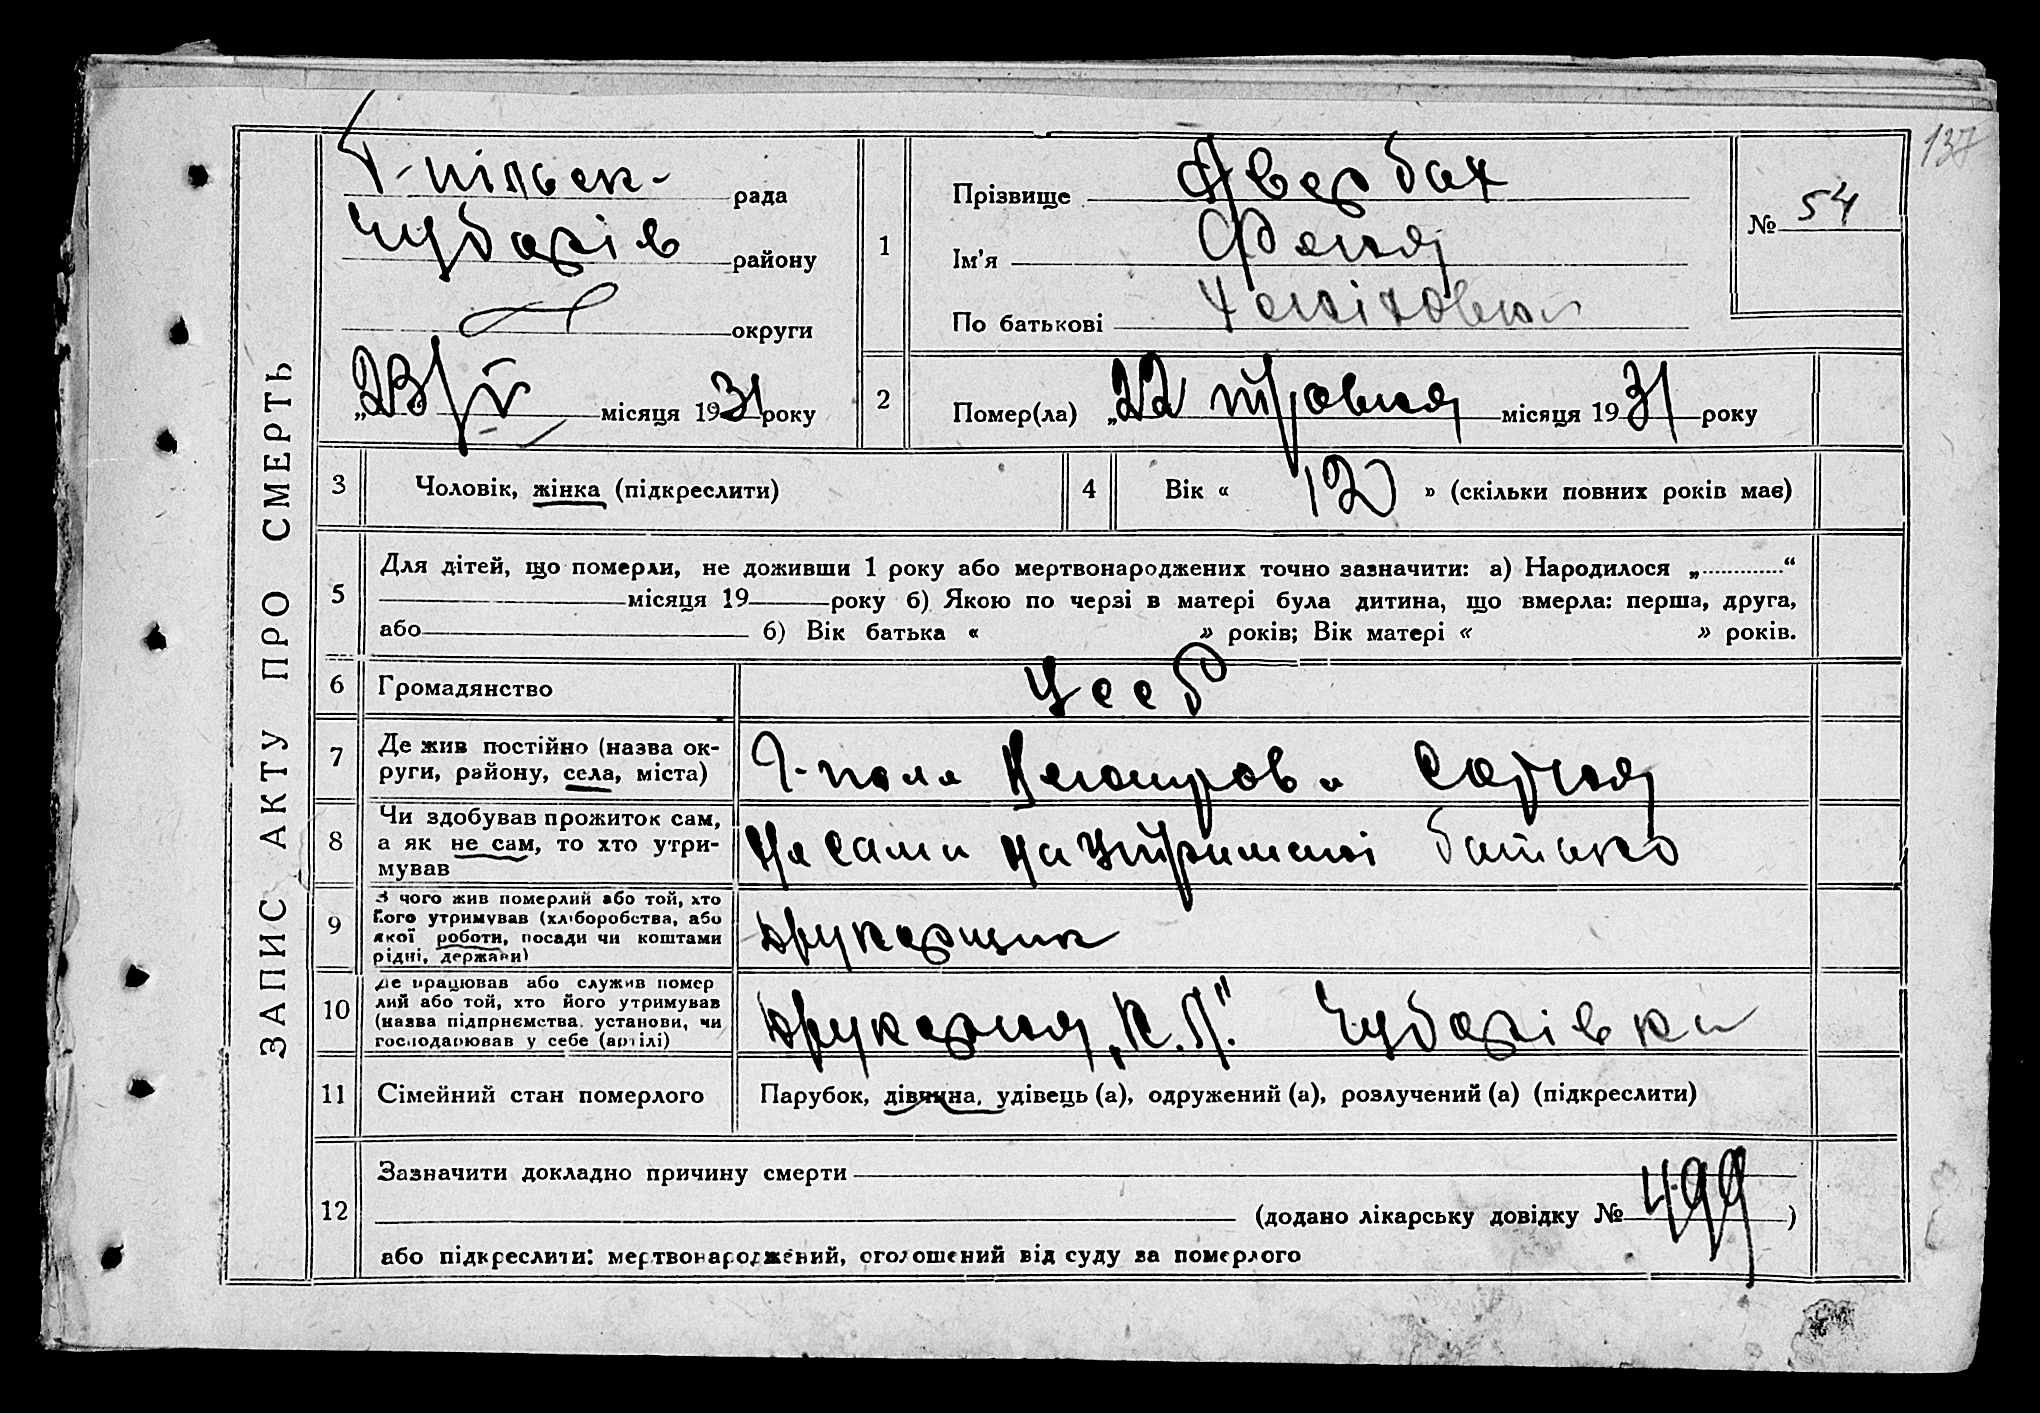 137
ЗАПИС АКТУ ПРО СМЕРТЬ
Г-пільськ- рада
Чубарів району
округи
„23/V місяця 1931 року
1
Прізвище Авербах
Ім'я Феня
По батькові
№ 54
2
Помер(ла) „22 травня місяця 1931 року
3
Чоловік, жінка (підкреслити)
4
Вік « 12 » (скільки повних років має)
5
Для дітей, що померли, не доживши 1 року або мертвонароджених точно зазначити: а) Народилося „............“
місяця 19 року б) Якою по черзі в матері була дитина, що вмерла: перша, друга,
або б) Вік батька « » років; Вік матері « » років.
6
Громадянство
УССР
7
Де жив постійно (назва ок-
руги, району, села, міста)
Г-поле Сотня
8
Чи здобував прожиток сам,
а як не сам, то хто утри-
мував
Не сама на утриманні батько
9
З чого жив померлий або той, хто
його утримував (хліборобства, або
якої роботи, посади чи коштами
рідні, держави)
друкарщик
10
Де працював або служив помер
лий або той, хто його утримував
(назва підприємства, установи, чи
господарював у себе (артілі)
друкарня „К.П." Чубарівки
11
Сімейний стан померлого
Парубок, дівчина, удівець (а), одружений (а), розлучений (а) (підкреслити)
12
Зазначити докладно причину смерти
(додано лікарську довідку № 499)
або підкреслити: мертвонароджений, оголошений від суду за померлого